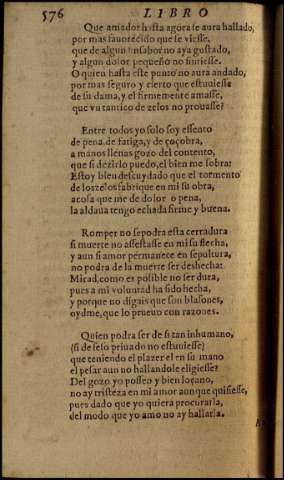 576 LIBRO
Que amador hasta agora se aura hallado,
por mas fauorecido que se viesse,
que de algun sinsabor no aya gustado,
y algun dolor pequeño no sintiesse.
O quien hasta este punto no aura andado,
por mas seguro y cierto que estuuiesse
de su dama, y el firmemente amasse,
que vn tantico de zelos no prouasse?
Entre todos yo solo soy essento
de pena, de fatiga, y de çoçobra,
a manos llenas gozo del contento,
que si dezirlo puedo, el bien me sobra:
Estoy bien descuydado que el tormento
de los zelos fabrique en mi su obra,
a cosa que me de dolor o pena,
la aldaua tengo echada firme y buena.
Romper no se podra esta cerradura
si muerte no assestasse en mi su flecha,
y aun si amor permanece en sepultura,
no podra de la muerte ser deshecha:
Mirad, como es posible no ser dura,
pues a mi voluntad ha sido hecha,
y porque no digais que son blasones,
oydme, que lo prueuo con razones.
Quien podra ser de si tan inhumano,
(si de seso priuado no estuuiesse)
que teniendo el plazer el en su mano
el pesar aun no hallandole eligiesse?
Del gozo yo posseo y bien loçano,
no ay tristeza en mi amor aunque quisiesse,
pues dado que yo quiera procurarla,
del modo que yo amo no ay hallarla.